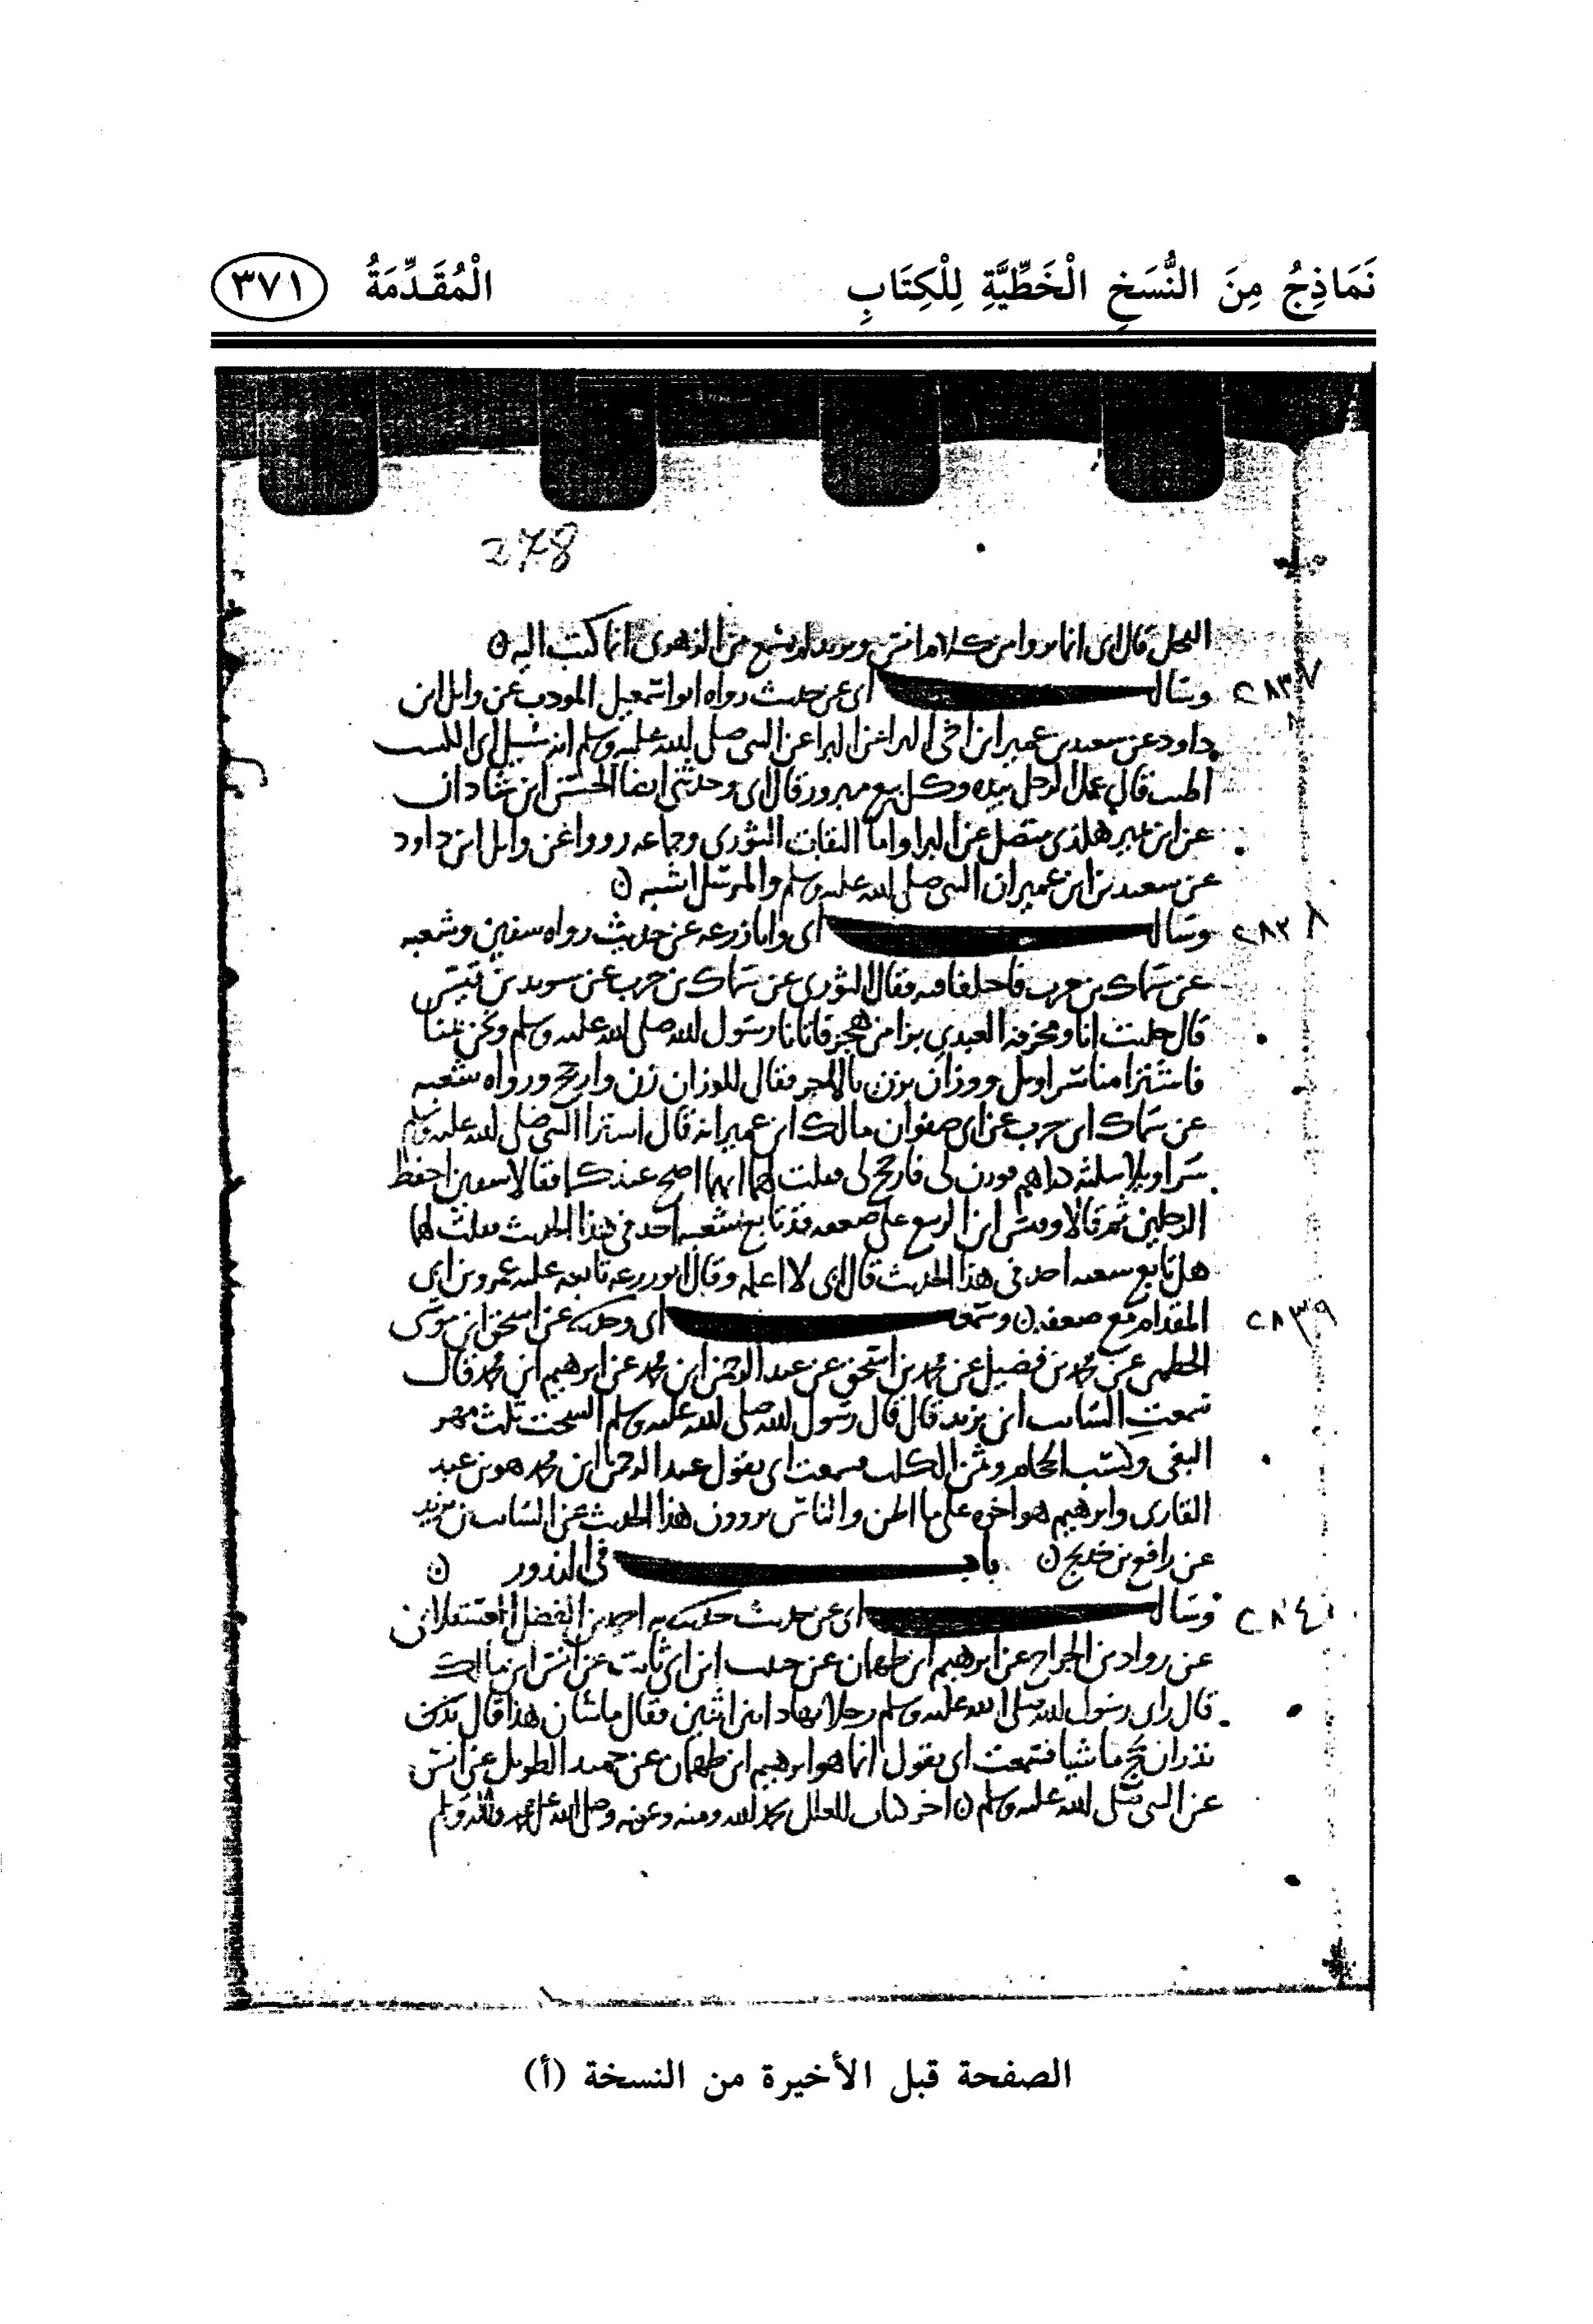 نَمَاذِجُ مِنَ النُّسَخِ الْخَطِّيَّةِ لِلْكِتَابِ الْمُقَدِّمَةُ ٣٧١
278
قال ابى انما كتب اليه ن
٢٨٣٧ وسالت ابى عن حديث رواه ابو اسمعيل المودب عن وايل ابن
داود عن سعيد بن عمير ابن اخى البرا عن البرا عن النبى صلى الله عليه وسلم انه سئل اى الكسب
اطيب قال عمل الرجل بيده وكل بيع مبرور قال ابى وحدثنى ايضا الحسن ابن شاذان
عن ابن نمير هكذى متصل عن البرا واما الثقات الثورى وجماعه رووا عن وايل ابن داود
عن سعيد بن ابن عمير ان النبى صلى الله عليه وسلم والمرسل اشبه ن
٢٨٣٨ وسالت ابى وابا زرعه عن حديث رواه سفين وشعبه
عن سماك بن حرب فاختلفا فيه فقال الثورى عن سماك بن حرب عن سويد بن قيس
قال جلبت انا ومخرفه العبدي بزا من هجر فاتانا رسول الله صلى الله عليه وسلم ونحن بمنا
فاشترا منا سراويل ووزان يزن بالاجر فقال للوزان زن وارجح ورواه شعبه
عن سماك ابن حرب عن ابى صفوان مالك ابن عمير انه قال اشترا النبى صلى الله عليه وسلم
سراويلا بثلثه دراهم فوزن لى فارجح لى فقلت لهما ايهما اصح عندكما فقالا سفين احفظ
الرجلين ثم قالا وقيس ابن الربيع على ضعفه قد تابع شعبه احد فى هذا الحديث فقلت لهما
هل تابع شعبه احد فى هذا الحديث قال ابى لا اعلم وقال ابو زرعه تابعه عليه عمرو بن ابى
٢٨٣٩ المقدام مع ضعفه ن وسمعت ابى وحدثنا عن اسحق ابن موسى
الخطمى عن محمد بن فضيل عن محمد بن اسحق عن عبد الرحمن ابن محمد عن ابرهيم ابن محمد قال
سمعت السايب ابن يزيد قال قال رسول الله صلى الله عليه وسلم السحت ثلث مهر
البغى وكسب الحجام وثمن الكلب فسمعت ابى يقول عبد الرحمن ابن محمد هو بن عبد
القارى وابرهيم هو اخوه على ما اظن والناس يروون هذا الحديث عن السايب بن يزيد
عن رافع بن خديج ن باب فى النذور ن
٢٨٤٠ وسالت ابى عن حديث حدثنا به احمد بن الفضل العسقلانى
عن رواد بن الجراح عن ابرهيم ابن طهمان عن حبيب ابن ابى ثابت عن انس ابن مالك
قال راى رسول الله صلى الله عليه وسلم رجلا يهادا بين اثنين فقال ما شان هذا قال
نذر ان يحج ماشيا فسمعت ابى يقول انما هو ابرهيم ابن طهمان عن حميد الطويل عن انس
عن النبى صلى الله عليه وسلم ن اخر كتاب العلل بحمد الله ومنه وعونه وصلى الله على محمد واله وسلم
الصفحة قبل الأخيرة من النسخة (أ)